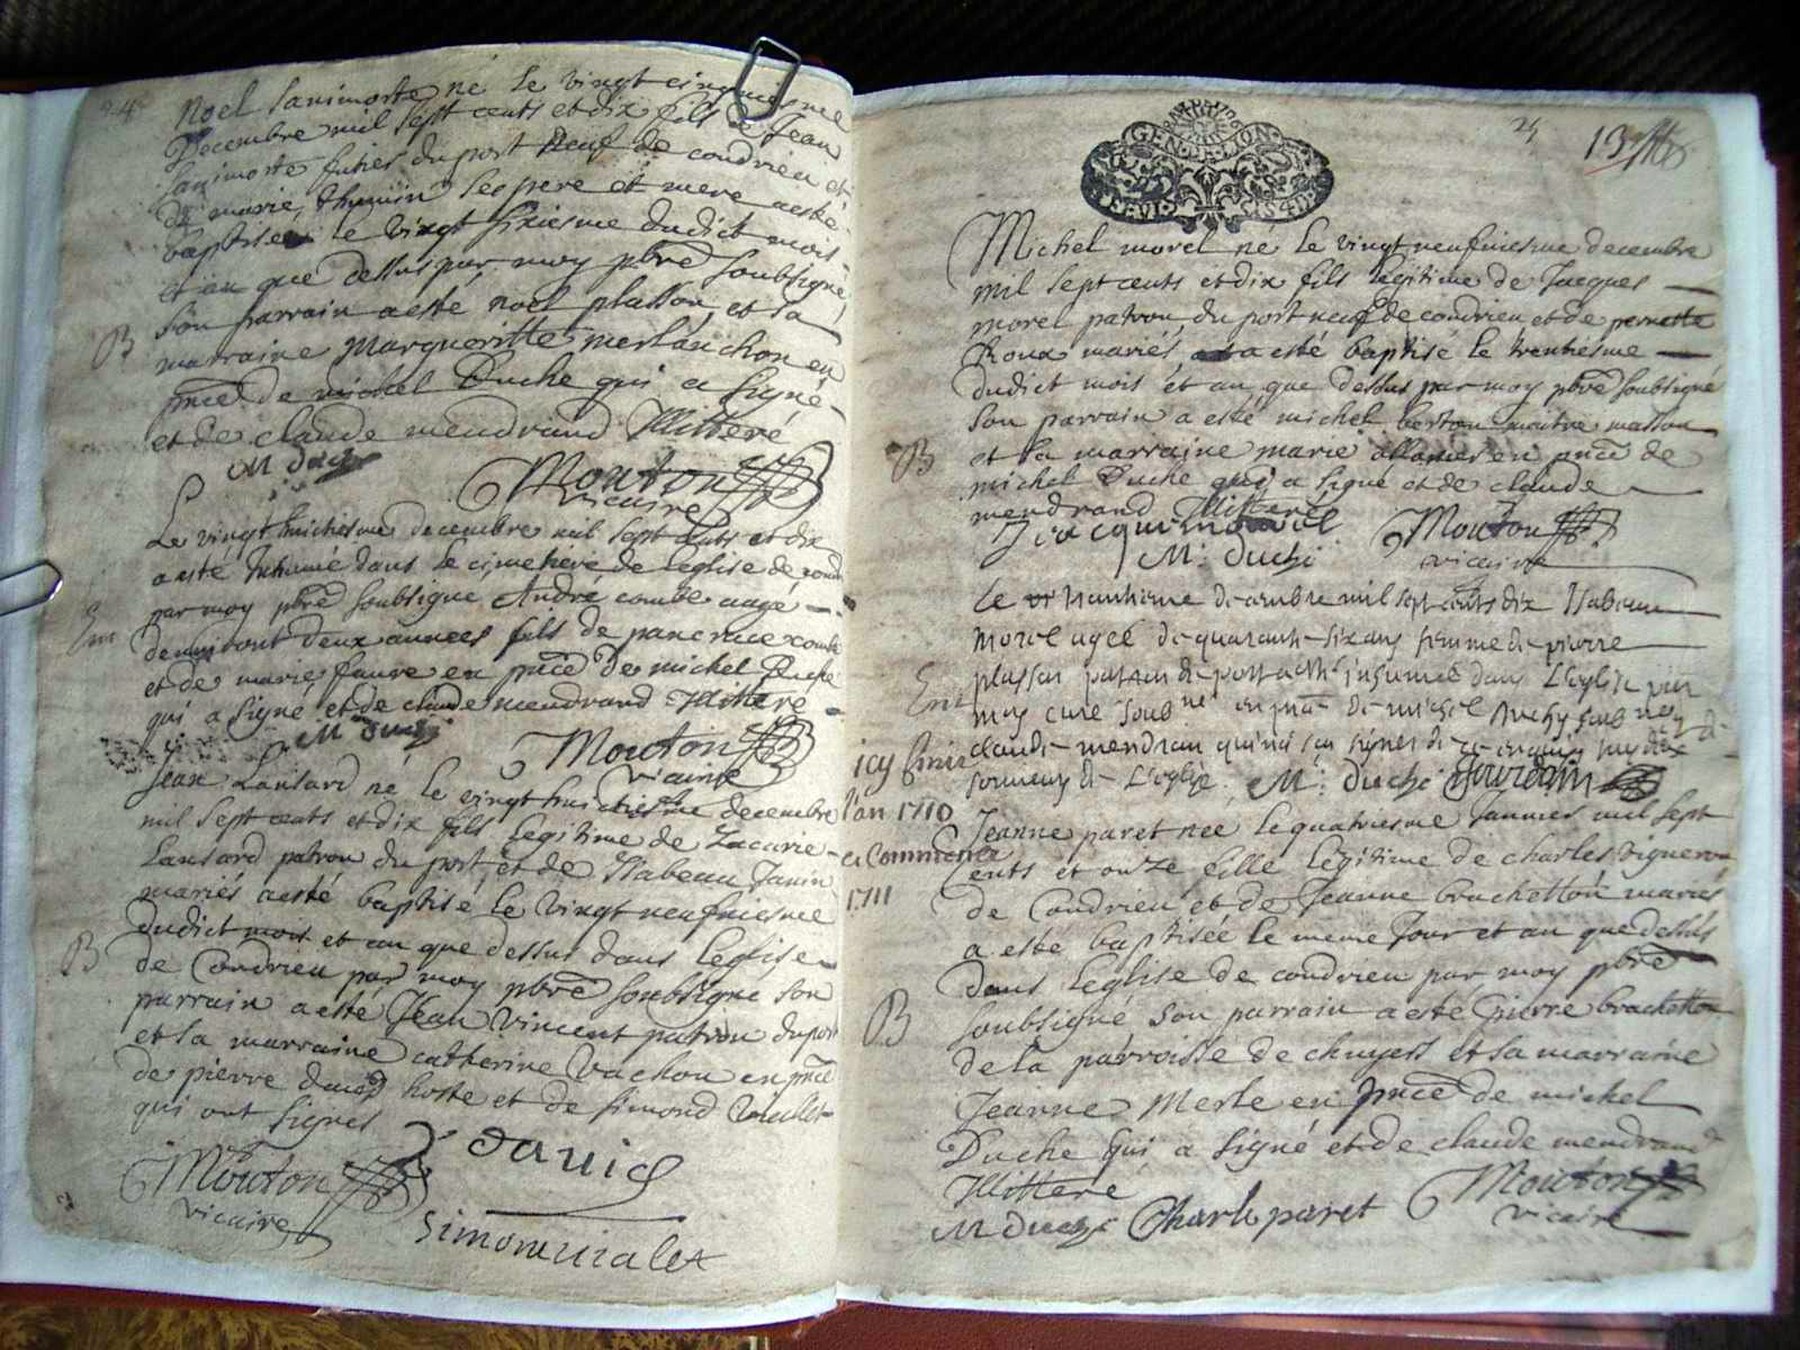 24
Noel Sanimorte né le vingt cinquiesme
Decembre mil sept cents et dix fils de Jean
Sanimorte du port Neuf de condrieu et
de marie thomin ses pere et mere a esté
baptisé le vingt sixiesme dudict mois
et an que dessus par moy pbre soubsigné
son parrain a esté noel plasson et sa
B
marraine Margueritte merlanchon en
pnce de michel Duche qui a signé
et de claude mendrand Illitteré
M duche
Mouton
vicaire
Le vingt huictiesme decembre mil sept cents et dix
a esté Inhumé dans le cimetiere de leglise de cond
par moy pbre soubsigne André combe aagé
Enr
denviront deux années fils de pancrace combe
et de marie faure en pnce de michel Duche
qui a signé et de claude mendrand Illiteré
M duche
Mouton
vicaire
Jean Lansard né le vingt huictiesme decembre
mil sept cents et dix fils legitime de Zacarie
Lansard patron du port et de Isabeau Janin
mariés a esté baptisé le vingt neufviesme
dudict mois et an que dessus dans leglise
B
de Condrieu par moy pbre soubsigne son
parrain a esté Jean Vincent patron du port
et sa marraine catherine Vachon en pnce
de pierre david hoste et de simond Vialet
qui ont signes
P david
Mouton
vicaire
Simon vialet
GEN DE LION
24
13
Michel morel né le vingt neufviesme decembre
mil sept cents et dix fils legitime de Jacques
morel patron du port neuf de condrieu et de pernette
Roux mariés a esté baptisé le trentiesme
dudict mois et an que dessus par moy pbre soubsigné
son parrain a esté michel berton maitre masson
B
et sa marraine marie allanier en pnce de
michel Duche qui a signe et de claude
mendrand Illitteré
Jacque morel
M: duche
Mouton
vicaire
Le trantieme decembre mil sept cents dix Isabeau
Morel agee de quarante six ans femme de pierre
plasson patron du port a esté inhumée dans L'eglise par
Enr
moy curé soubné en pnce de michel duche soubné
claude mendran qui n'a sceu signer de ce enquis
sonneur de L'eglise. M: duche Jourdain
icy finit
l'an 1710
et Commence
1711
Jeanne paret née le quatriesme Janvier mil sept
cents et onze fille legitime de charles vigneron
de Condrieu et de Jeanne brachetton mariés
a esté baptisée le meme Jour et an que dessus
dans Leglise de condrieu par moy pbre
B
soubsigné son parrain a esté pierre brachetton
de la parroisse de chuyers et sa marraine
Jeanne Merle en pnce de michel
Duche qui a signé et de claude mendrand
Illitteré
M duche Charle paret
Mouton
vicaire